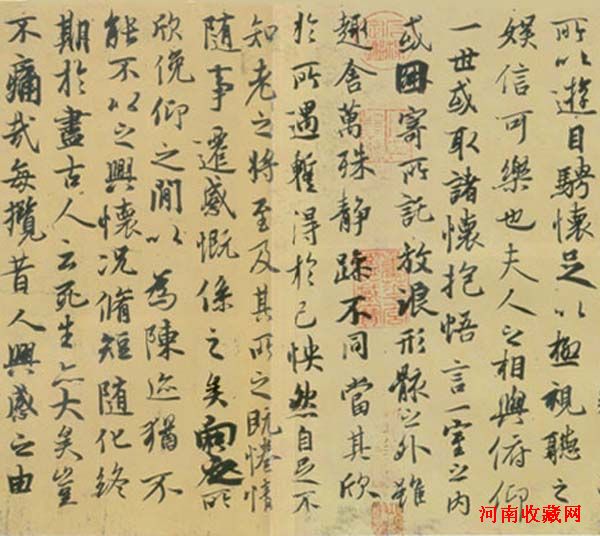 所以遊目騁懷足以極視聽之
娛信可樂也夫人之相與俯仰
一世或取諸懷抱悟言一室之內
或因寄所託放浪形骸之外雖
趣舍萬殊靜躁不同當其欣
於所遇蹔得於己怏然自足不
知老之將至及其所之既惓情
隨事遷感慨係之矣向之所
欣俛仰之閒以為陳迹猶不
能不以之興懷況脩短隨化終
期於盡古人云死生亦大矣豈
不痛哉每攬昔人興感之由
河南收藏网